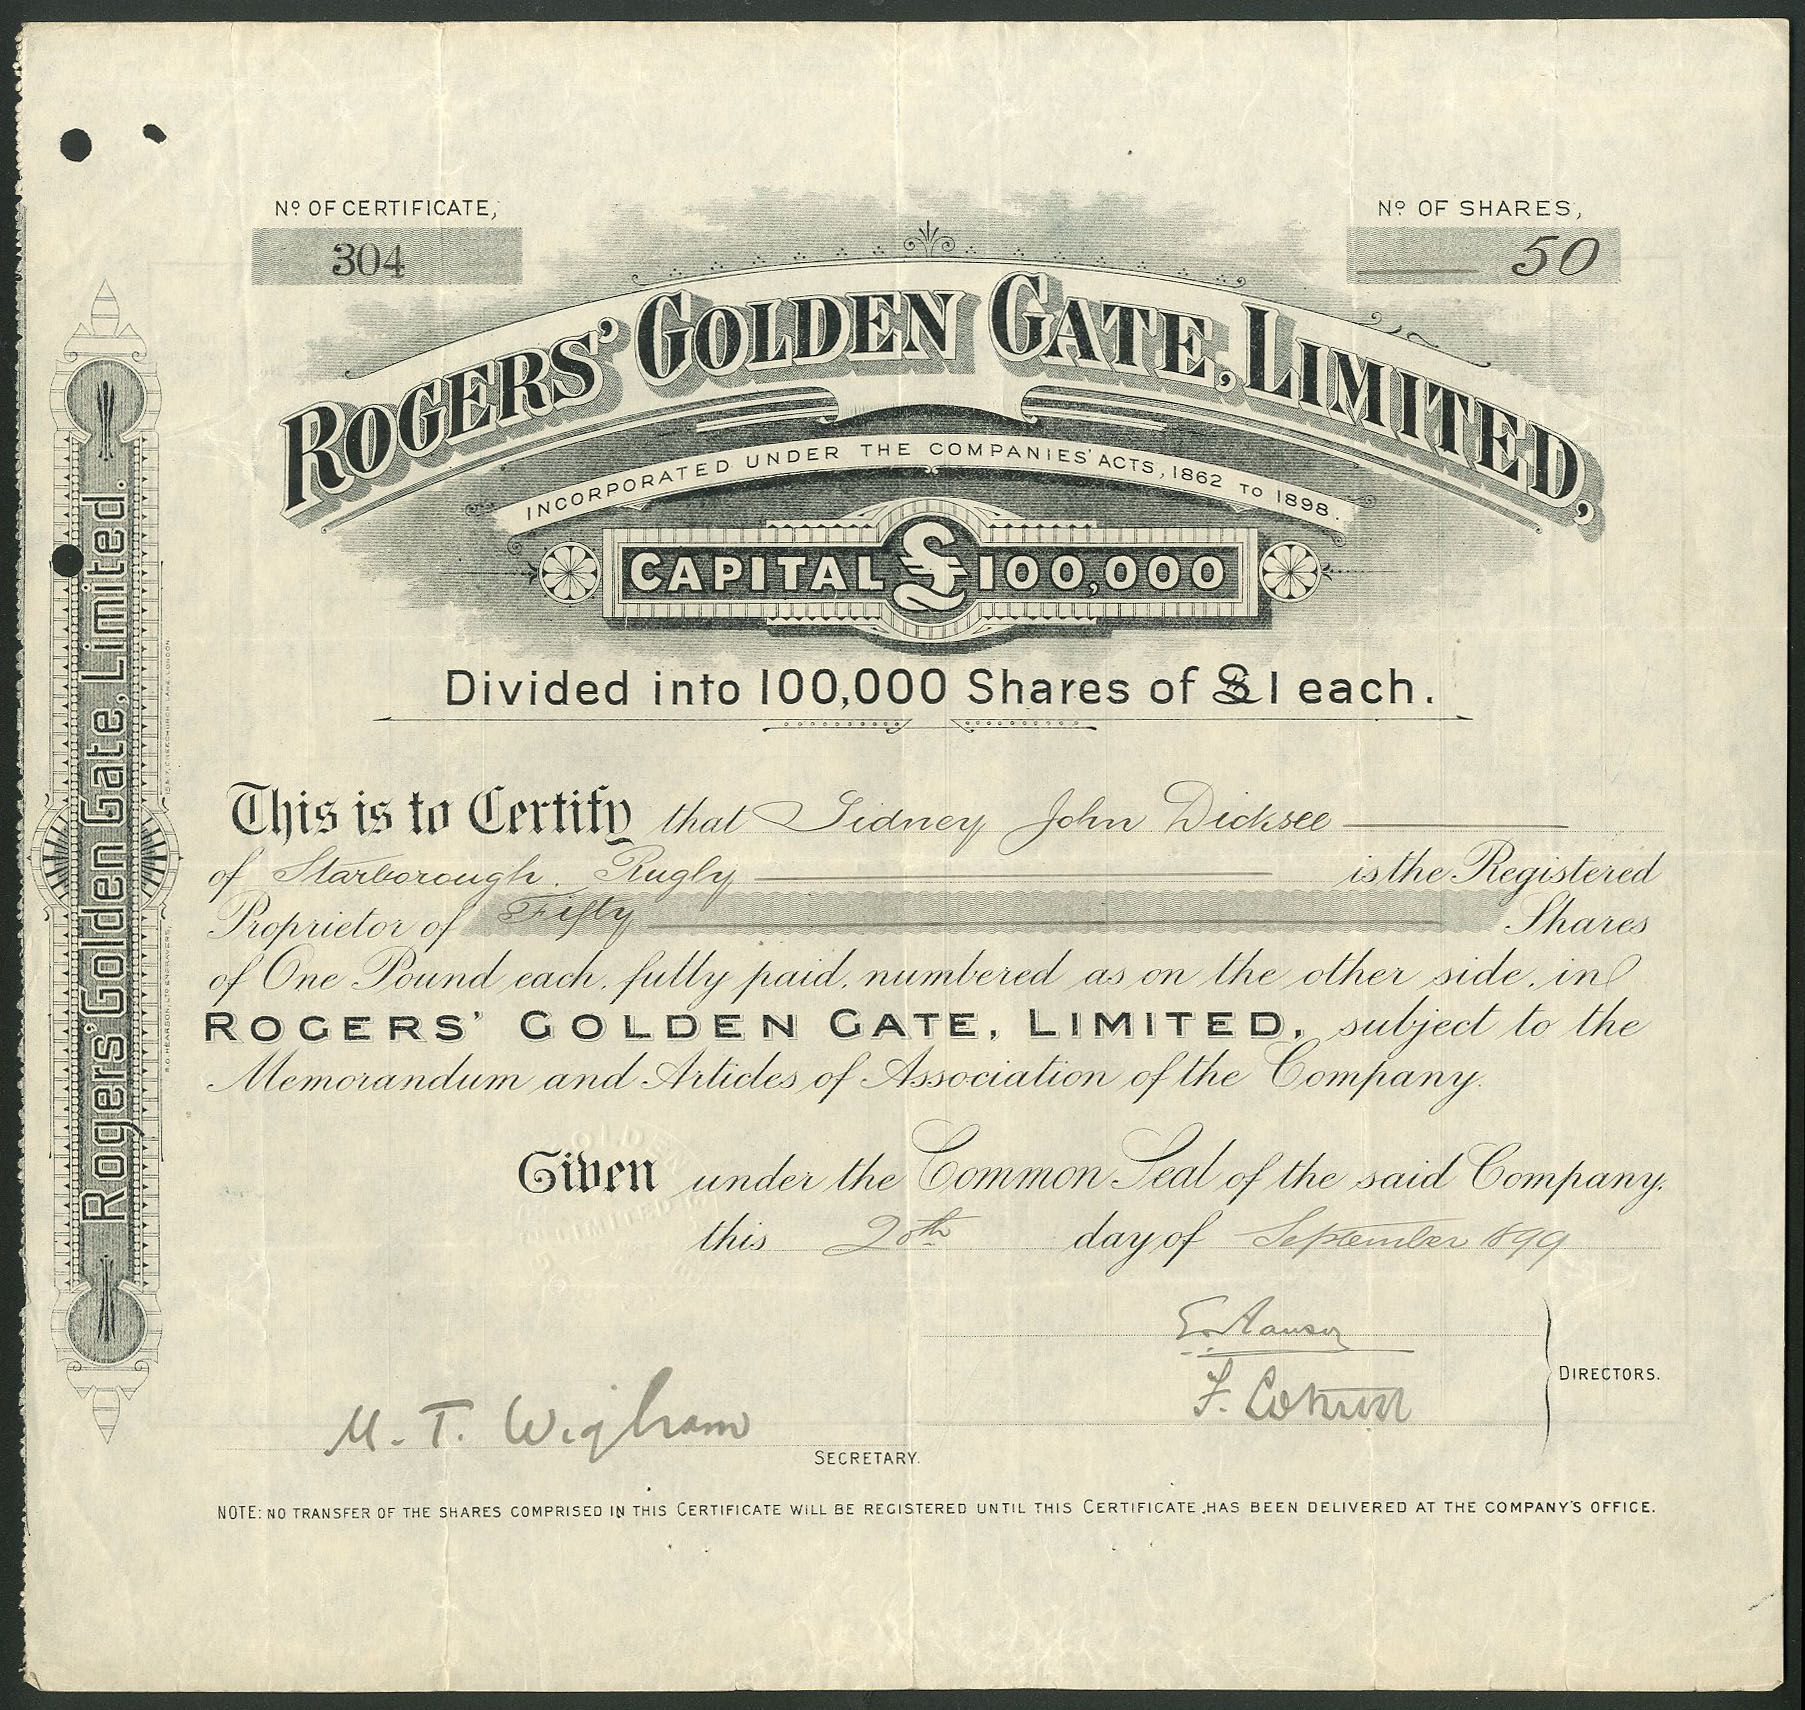 Nº OF CERTIFICATE,
304
Nº OF SHARES,
50
ROGERS' GOLDEN GATE, LIMITED,
INCORPORATED UNDER THE COMPANIES' ACTS, 1862 TO 1898.
CAPITAL £100,000
Divided into 100,000 Shares of £1 each.
This is to Certify that Sidney John Dicksee
of Starborough. Rugby is the Registered
Proprietor of Fifty Shares
of One Pound each, fully paid, numbered as on the other side, in
ROGERS' GOLDEN GATE, LIMITED, subject to the
Memorandum and Articles of Association of the Company.
Given under the Common Seal of the said Company,
this 20th day of September 1899
F.
DIRECTORS.
M. T. Wigham
SECRETARY.
NOTE: NO TRANSFER OF THE SHARES COMPRISED IN THIS CERTIFICATE WILL BE REGISTERED UNTIL THIS CERTIFICATE, HAS BEEN DELIVERED AT THE COMPANY'S OFFICE.
Rogers' Golden Gate, Limited.